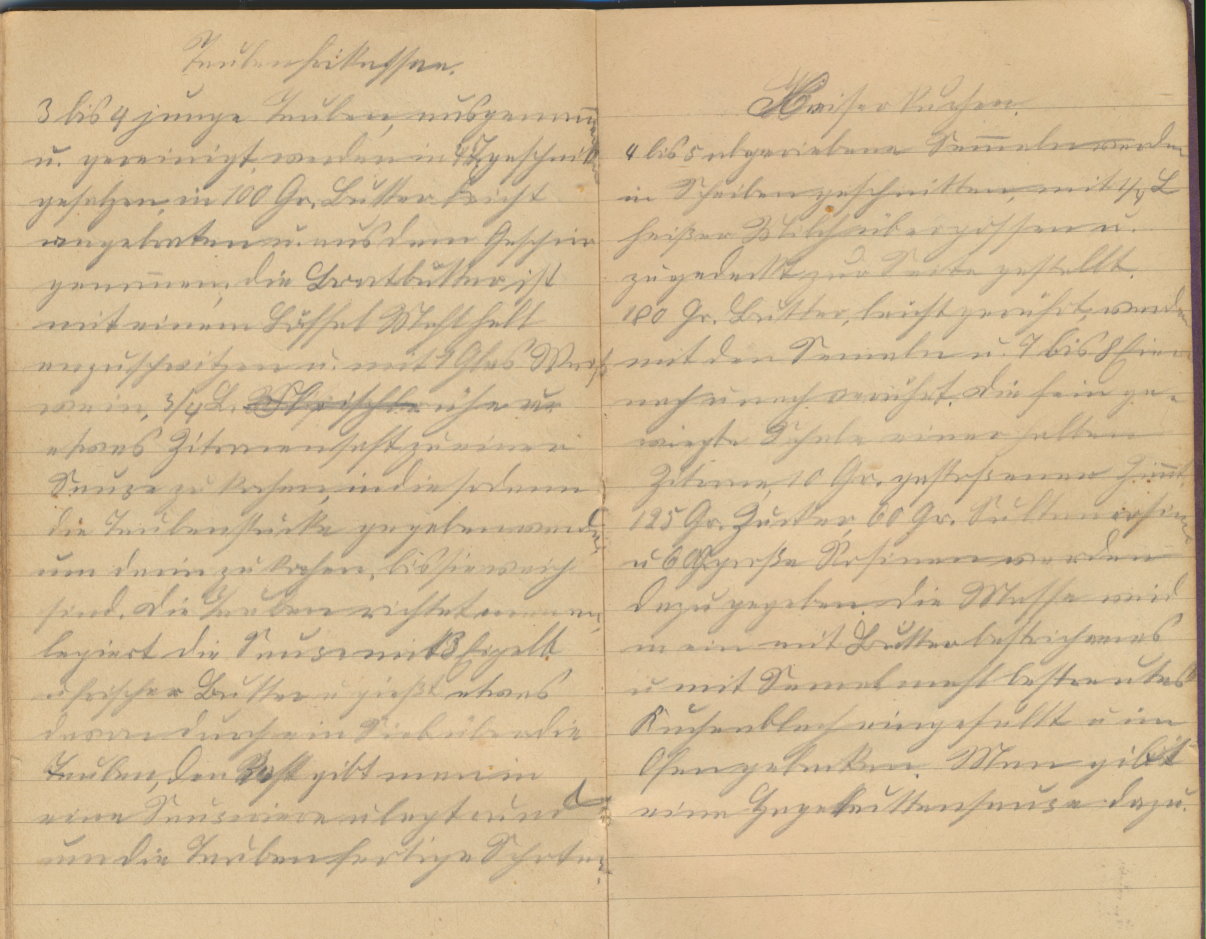 Taubenfrikassee.
3 bis 4 junge Tauben, ausgenom̅en
u. gereinigt, werden in 4 T. geschnitten
gesalzen, in 100 Gr. Butter leicht
angebraten u. aus dem Geschirr
genom̅en, die Bratbutter ist
mit einem Löffel Mehl hell
anzuschwitzen u. mit 1 Glas Weiß
wein, 3/4 L. Fleischbrühe u
etwas Zitronensaft zu einer
Sause zu kochen, in die sodann
die Taubenstücke gegeben werden
um darin zu kochen, bis sie weich
sind. Die Tauben richtet man an,
legiert die Sause mit 3 Eigelb
u frischer Butter u gießt etwas
davon durch ein Sieb über die
Tauben, den Rest gibt man in
eine Sausiere u legt rund
um die Tauben fertige Schoten.
Kaiserkuchen.
4 bis 5 abgeriebene Sem̅eln werden
in Scheiben geschnitten, mit 1/4 L
heißer Milch übergossen u.
zugedeckt zur Seite gestellt.
180 Gr. Butter, leicht gerührt, werden
mit den Semeln u. 7 bis 8 Eiern
nach u nach verrührt. Die fein ge-
wiegte Schale einer halben
Zitrone, 10 Gr. gestoßenen Zim̅t,
125 Gr. Zucker, 60 Gr. Sultaninen
u 60 große Rosinen werden
dazu gegeben. Die Masse wird
in ein mit Butter bestrichenes
u mit Semelmehl bestreutes
Kuchenblech eingefüllt u im
Ofen gebacken. Man gibt
eine Hagebuttensause dazu.